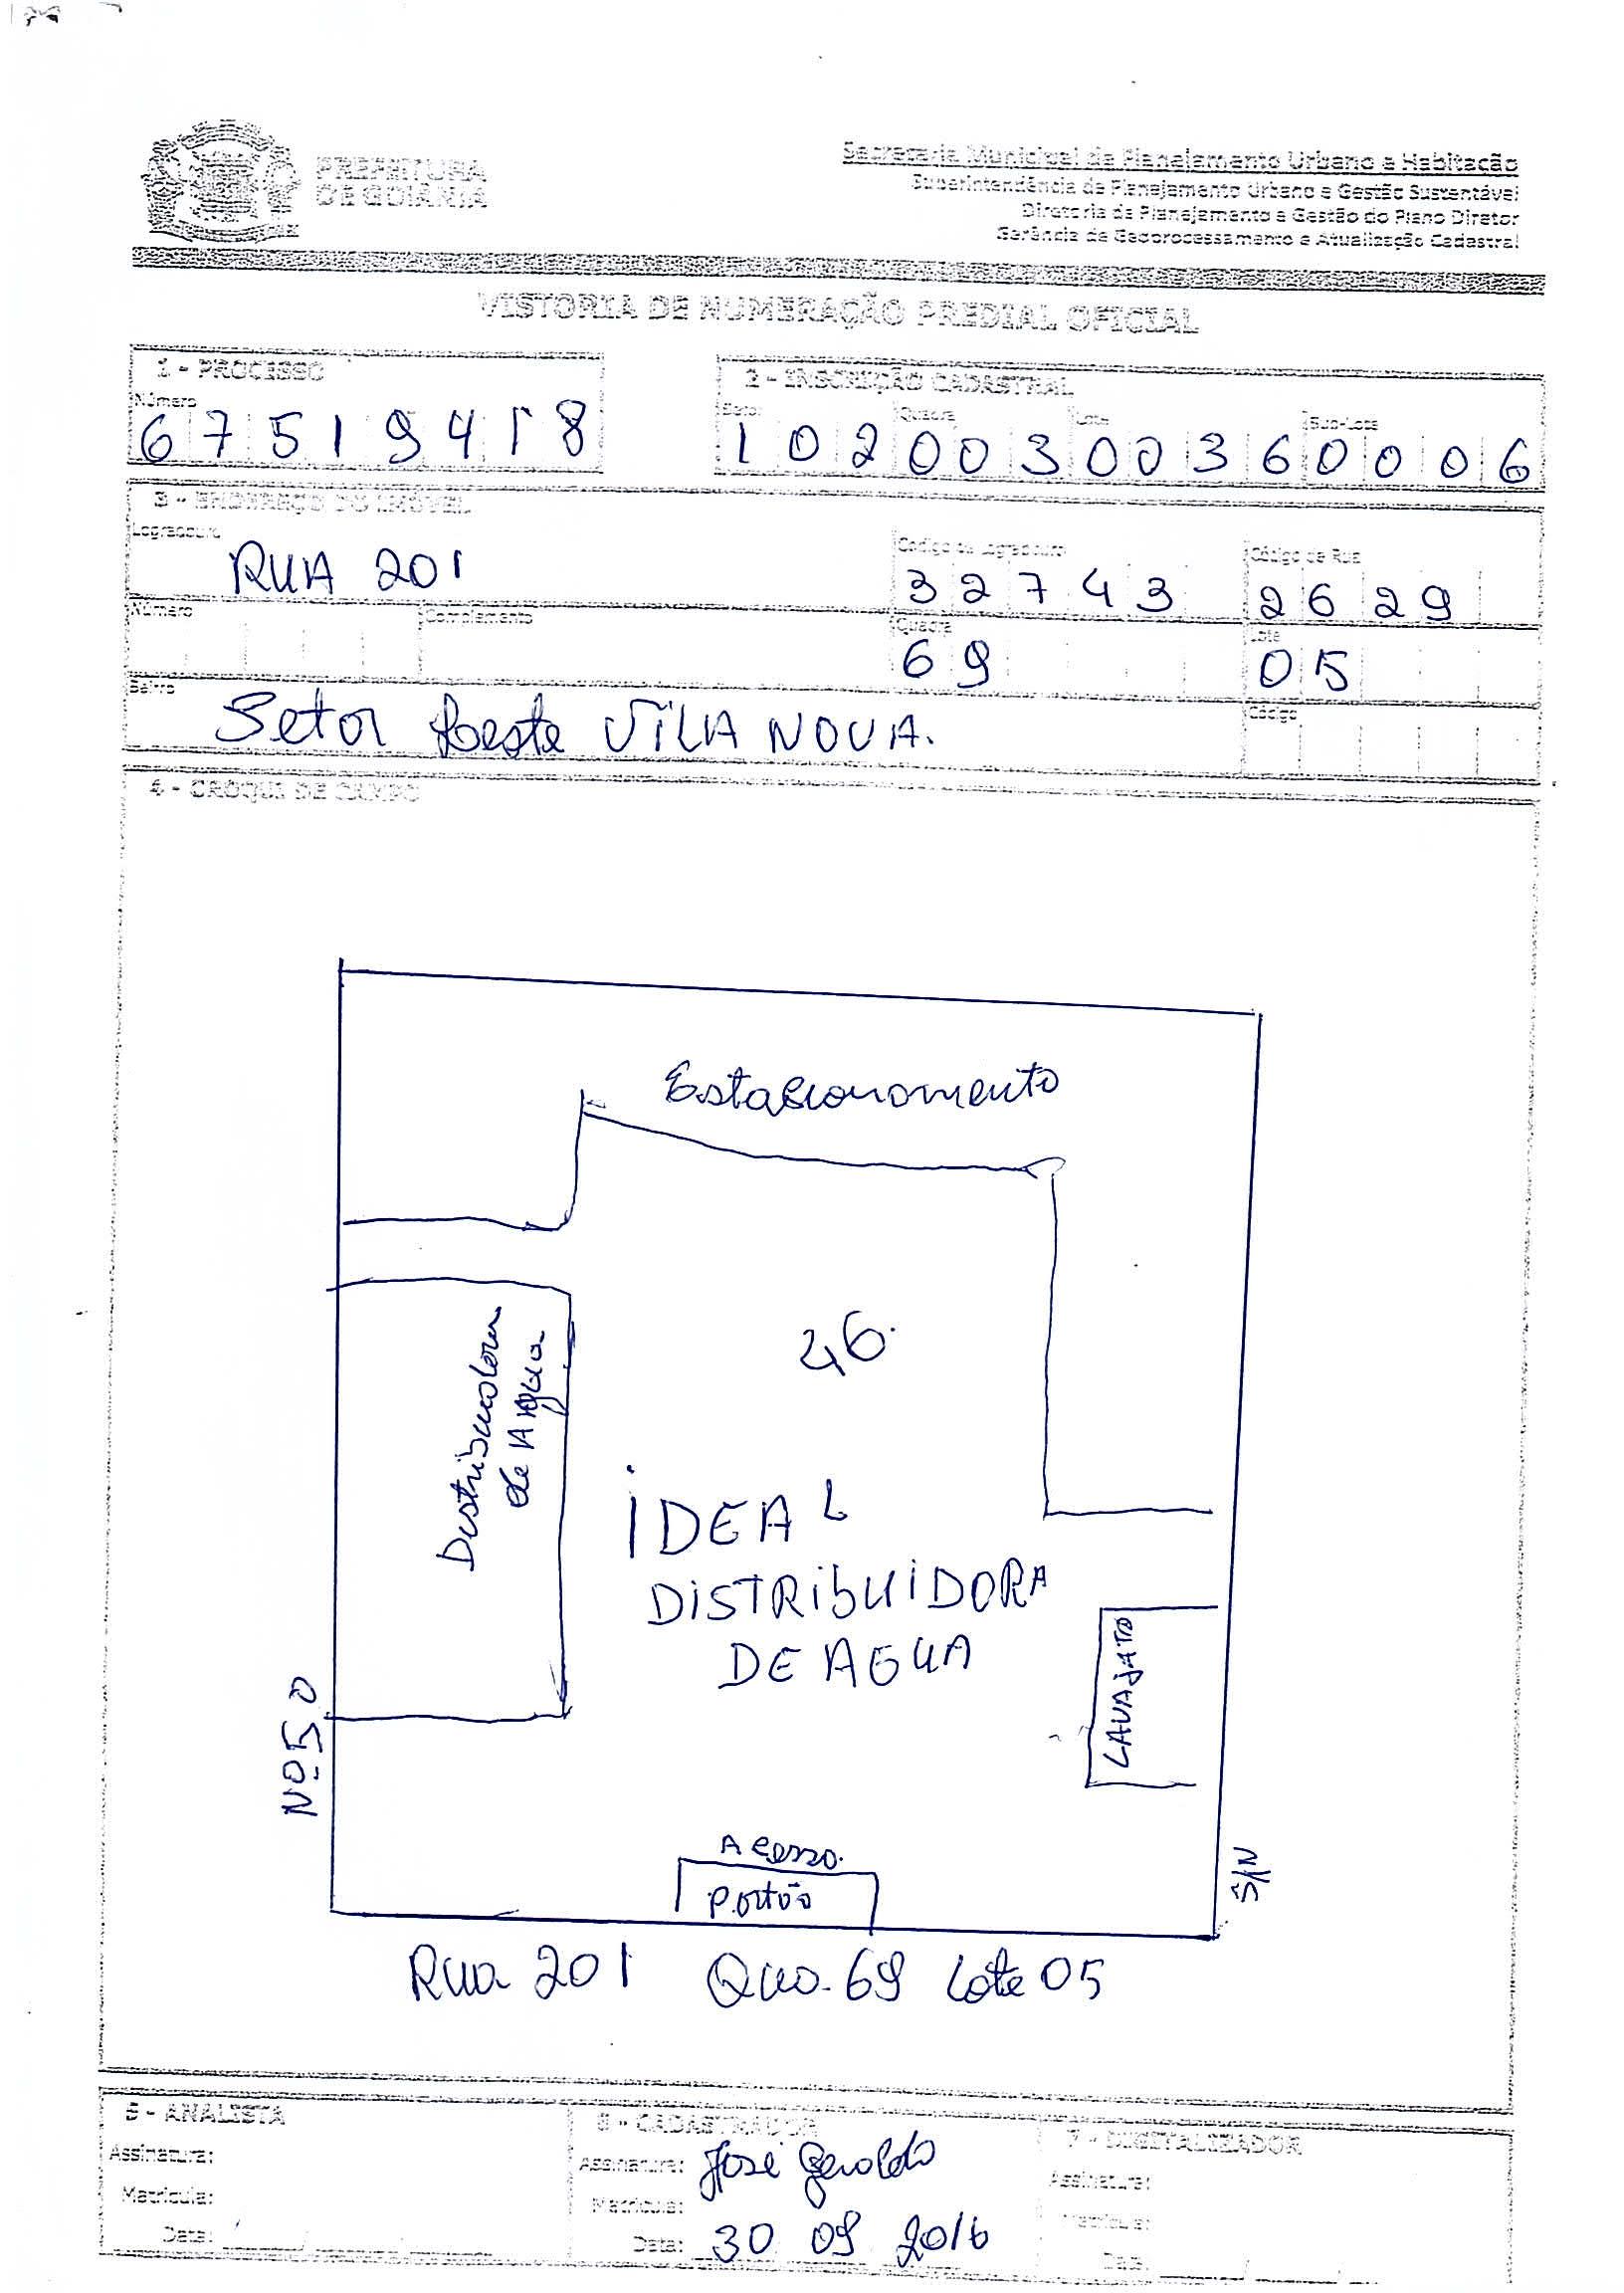 PREFEITURA
DE GOIÂNIA
Secretaria Municipal de Planejamento Urbano e Habitação
Superintendência de Planejamento Urbano e Gestão Sustentável
Diretoria de Planejamento e Gestão do Plano Diretor
Gerência de Geoprocessamento e Atualização Cadastral
VISTORIA DE NUMERAÇÃO PREDIAL OFICIAL
1 - PROCESSO
Número
6 7 5 1 9 4 1 8
2 - INSCRIÇÃO CADASTRAL
Setor Quadra Lote Sub-Lote
1 0 2 0 0 3 0 0 3 6 0 0 0 6
3 - ENDEREÇO DO IMÓVEL
Logradouro Código do Logradouro Código da Rua
RUA 201 3 2 7 4 3 2 6 2 9
Número Complemento Quadra Lote
6 9 0 5
Bairro Código
Setor Leste VILA NOVA.
4 - CROQUI DE CAMPO
Estacionamento
46.
Distribuidora
de Agua
IDEAL
DISTRIbUIDORA
DE AGUA
LAVAJATO
Nº 50
S/N
Acesso.
Portão
Rua 201 Qua. 69 Lote 05
5 - ANALISTA
Assinatura:
Matrícula:
Data:
6 - CADASTRADOR
Assinatura: José Geraldo
Matrícula:
Data: 30 09 2016
7 - DIGITALIZADOR
Assinatura:
Matrícula:
Data: